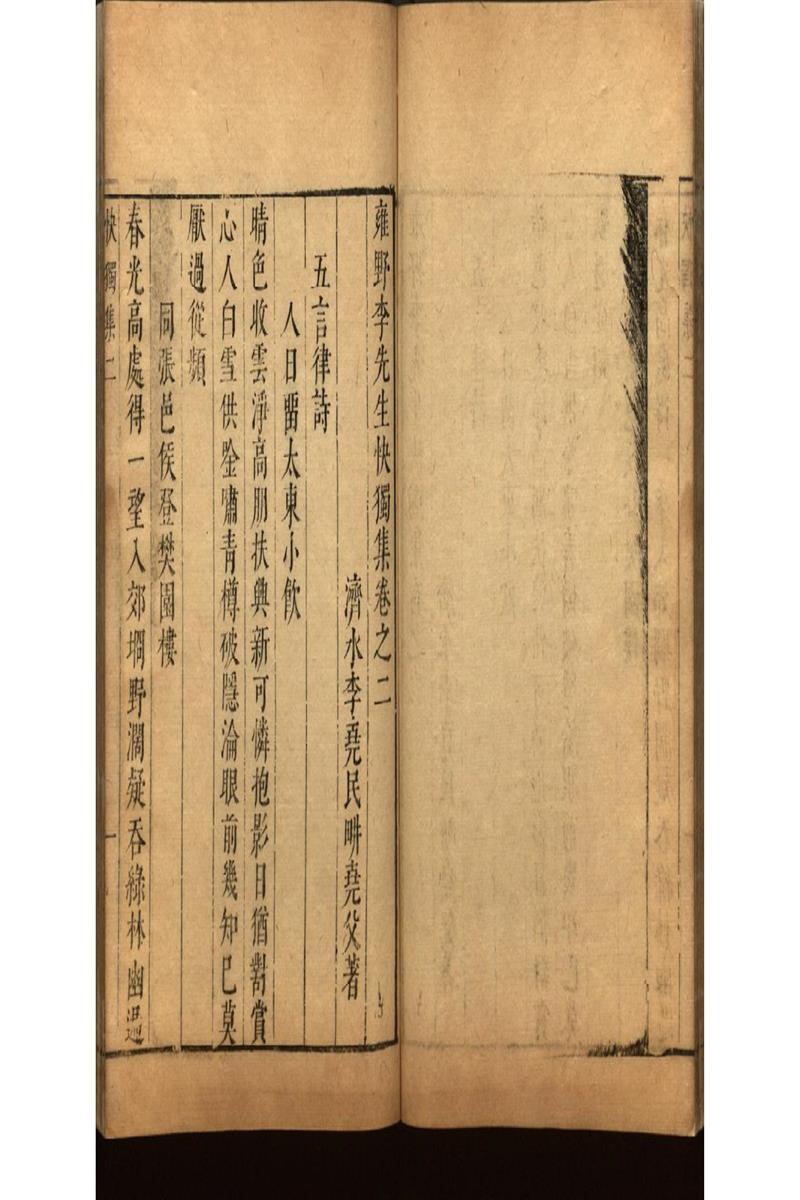 雍野李先生快獨集卷之二
濟水李堯民畊堯父著
五言律詩
人日畱太東小飲
晴色收雲淨高朋扶興新可憐抱影日猶對賞
心人白雪供唫嘯青樽破隱淪眼前幾知已莫
厭過從頻
同張邑侯登樊園樓
春光高處得一望入郊坰野濶疑吞綠林幽
快獨集二
一